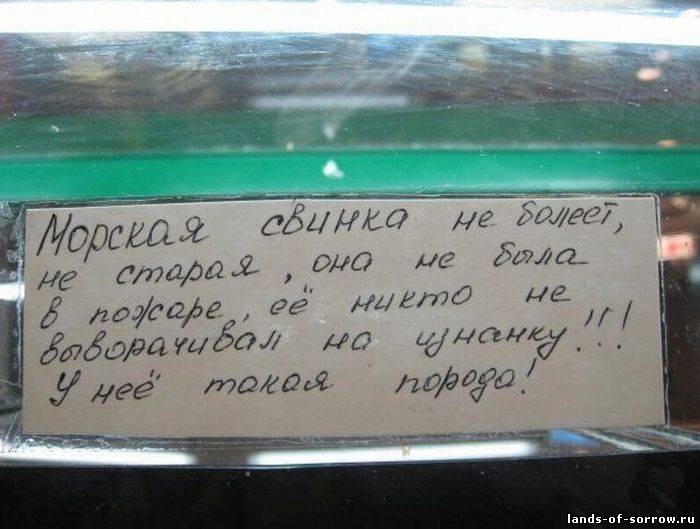 Морская свинка не болеет,
не старая, она не была
в пожаре, её никто не
выворачивал на изнанку!!!
У неё такая порода!
lands-of-sorrow.ru